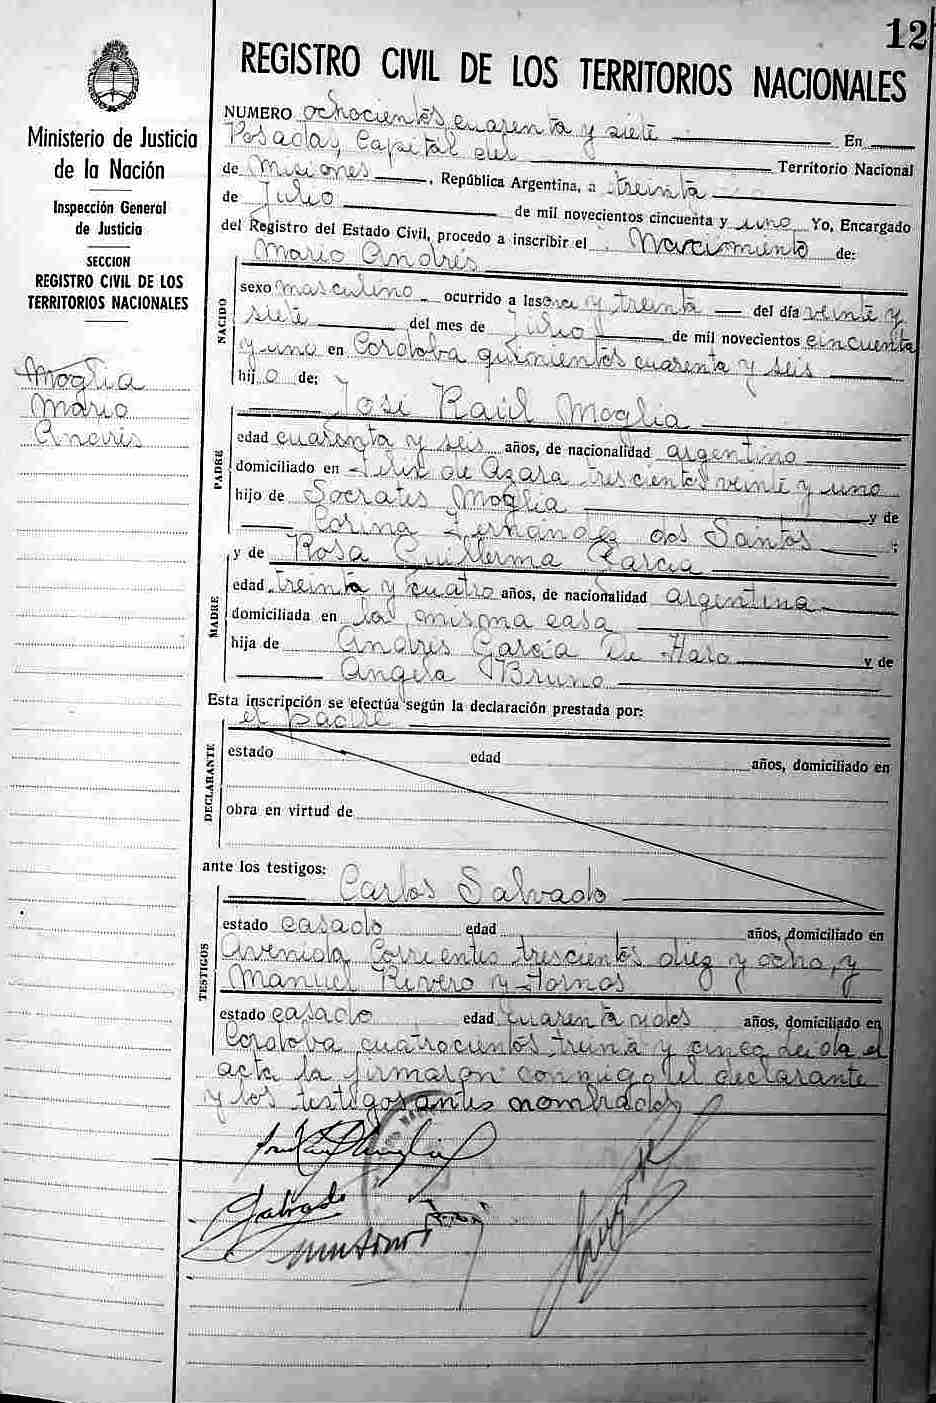 12
REGISTRO CIVIL DE LOS TERRITORIOS NACIONALES
Ministerio de Justicia
de la Nación
Inspección General
de Justicia
SECCION
REGISTRO CIVIL DE LOS
TERRITORIOS NACIONALES
Moglia
Mario
Andrés
NUMERO ochocientos cuarenta y siete En
Posadas, Capital del Territorio Nacional
de Misiones, República Argentina, a treinta
de Julio de mil novecientos cincuenta y uno Yo, Encargado
del Registro del Estado Civil, procedo a inscribir el Nacimiento de:
Mario Andrés
NACIDO
sexo masculino ocurrido a las once y treinta del día veinte y
siete del mes de Julio de mil novecientos cincuenta
y uno en Cordoba quinientos cuarenta y seis
hijo de:
José Raúl Moglia
PADRE
edad cuarenta y seis años, de nacionalidad argentino
domiciliado en Felix de Azara trescientos veinte y uno
hijo de Socrates Moglia y de
Corina Fernández dos Santos ;
y de Rosa Guillerma García
MADRE
edad treinta y cuatro años, de nacionalidad argentina
domiciliada en la misma casa
hija de Andrés García De Haro y de
Angela Bruno
Esta inscripción se efectúa según la declaración prestada por:
el padre
DECLARANTE
estado edad años, domiciliado en
obra en virtud de
ante los testigos:
Carlos Salvado
TESTIGOS
estado casado edad años, domiciliado en
Avenida Corrientes trescientos diez y ocho, y
Manuel Rivero y Hornos
estado casado edad cuarenta y dos años, domiciliado en
Cordoba cuatrocientos treinta y cinco Leida el
acta la firmaron conmigo el declarante
y los testigos antes nombrados
Salvado